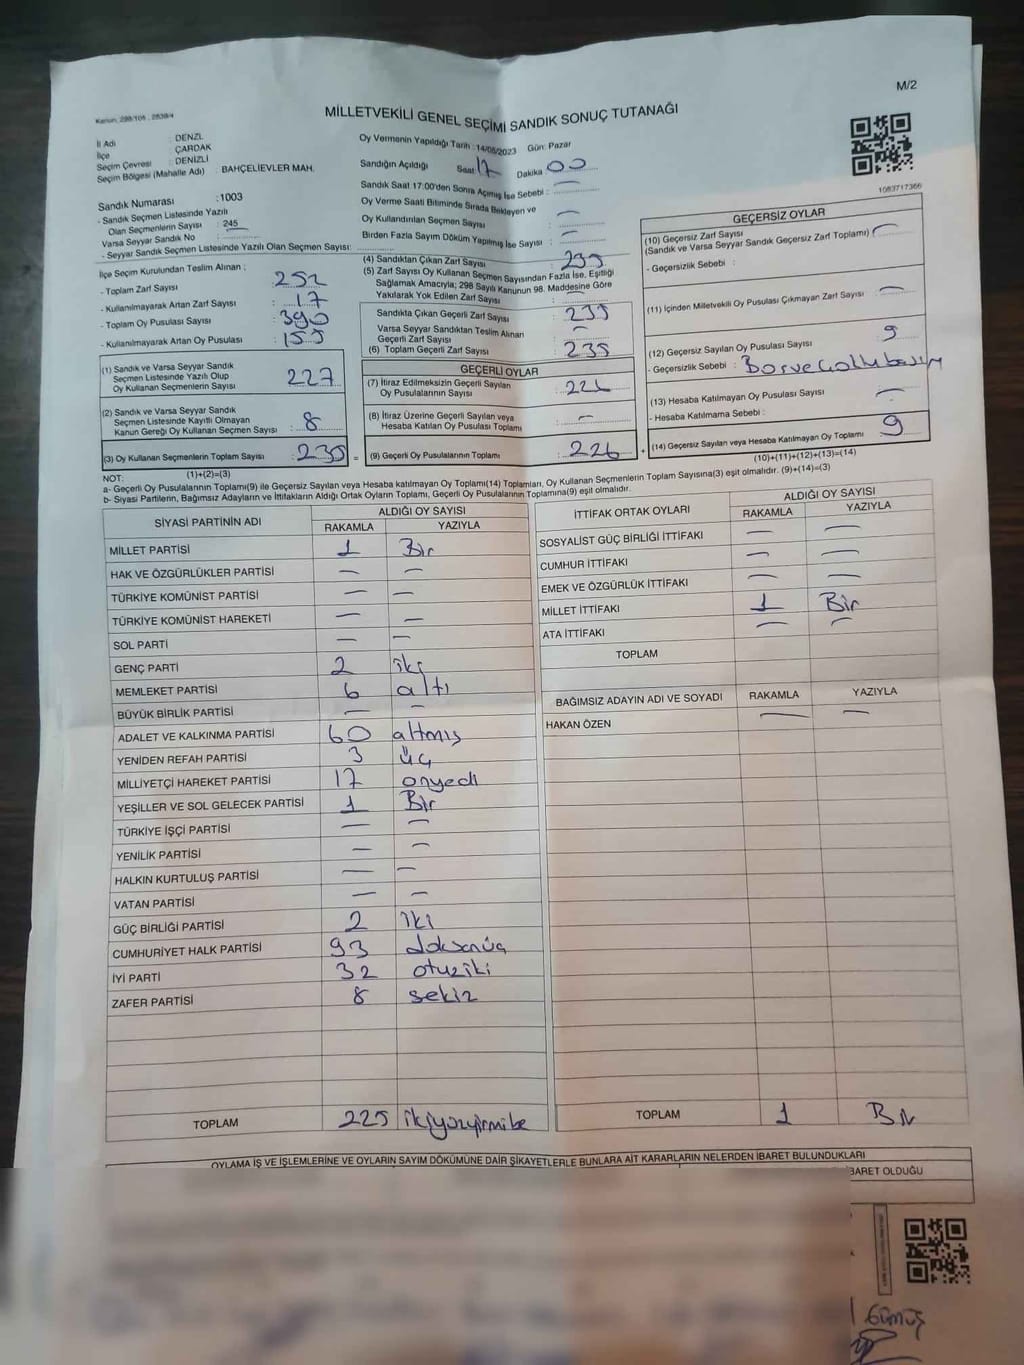 M/2
Kanun, 298/105 , 2839/4
MİLLETVEKİLİ GENEL SEÇİMİ SANDIK SONUÇ TUTANAĞI
İl Adı : DENZL
İlçe : ÇARDAK
Seçim Çevresi : DENİZLİ
Seçim Bölgesi (Mahalle Adı) : BAHÇELİEVLER MAH.
Oy Vermenin Yapıldığı Tarih : 14/05/2023 Gün: Pazar
Sandığın Açıldığı Saat 17 Dakika 00
Sandık Saat 17:00'den Sonra Açılmış İse Sebebi : —
Oy Verme Saati Bitiminde Sırada Bekleyen ve
Oy Kullandırılan Seçmen Sayısı —
Birden Fazla Sayım Döküm Yapılmış İse Sayısı : —
1083717366
Sandık Numarası :1003
- Sandık Seçmen Listesinde Yazılı
Olan Seçmenlerin Sayısı : 245
Varsa Seyyar Sandık No :
- Seyyar Sandık Seçmen Listesinde Yazılı Olan Seçmen Sayısı:
İlçe Seçim Kurulundan Teslim Alınan ;
- Toplam Zarf Sayısı : 252
- Kullanılmayarak Artan Zarf Sayısı : 17
- Toplam Oy Pusulası Sayısı : 390
- Kullanılmayarak Artan Oy Pusulası : 155
(1) Sandık ve Varsa Seyyar Sandık
Seçmen Listesinde Yazılı Olup
Oy Kullanan Seçmenlerin Sayısı : 227
(2) Sandık ve Varsa Seyyar Sandık
Seçmen Listesinde Kayıtlı Olmayan
Kanun Gereği Oy Kullanan Seçmen Sayısı : 8
(3) Oy Kullanan Seçmenlerin Toplam Sayısı : 235
(1)+(2)=(3)
(4) Sandıktan Çıkan Zarf Sayısı : 235
(5) Zarf Sayısı Oy Kullanan Seçmen Sayısından Fazla İse, Eşitliği
Sağlamak Amacıyla; 298 Sayılı Kanunun 98. Maddesine Göre
Yakılarak Yok Edilen Zarf Sayısı : —
Sandıkta Çıkan Geçerli Zarf Sayısı : 235
Varsa Seyyar Sandıktan Teslim Alınan
Geçerli Zarf Sayısı : —
(6) Toplam Geçerli Zarf Sayısı : 235
GEÇERLİ OYLAR
(7) İtiraz Edilmeksizin Geçerli Sayılan
Oy Pusulalarının Sayısı : 226
(8) İtiraz Üzerine Geçerli Sayılan veya
Hesaba Katılan Oy Pusulası Toplamı : —
(9) Geçerli Oy Pusulalarının Toplamı : 226
GEÇERSİZ OYLAR
(10) Geçersiz Zarf Sayısı
(Sandık ve Varsa Seyyar Sandık Geçersiz Zarf Toplamı) : —
- Geçersizlik Sebebi :
(11) İçinden Milletvekili Oy Pusulası Çıkmayan Zarf Sayısı : —
(12) Geçersiz Sayılan Oy Pusulası Sayısı : 9
- Geçersizlik Sebebi :
(13) Hesaba Katılmayan Oy Pusulası Sayısı : —
- Hesaba Katılmama Sebebi :
(14) Geçersiz Sayılan veya Hesaba Katılmayan Oy Toplamı : 9
(10)+(11)+(12)+(13)=(14)
NOT:
a- Geçerli Oy Pusulalarının Toplamı(9) ile Geçersiz Sayılan veya Hesaba katılmayan Oy Toplamı(14) Toplamları, Oy Kullanan Seçmenlerin Toplam Sayısına(3) eşit olmalıdır. (9)+(14)=(3)
b- Siyasi Partilerin, Bağımsız Adayların ve İttifakların Aldığı Ortak Oyların Toplamı, Geçerli Oy Pusulalarının Toplamına(9) eşit olmalıdır.
SİYASİ PARTİNİN ADI ALDIĞI OY SAYISI
RAKAMLA YAZIYLA
MİLLET PARTİSİ 1 Bir
HAK VE ÖZGÜRLÜKLER PARTİSİ — —
TÜRKİYE KOMÜNİST PARTİSİ — —
TÜRKİYE KOMÜNİST HAREKETİ — —
SOL PARTİ — —
GENÇ PARTİ 2 iki
MEMLEKET PARTİSİ 6 altı
BÜYÜK BİRLİK PARTİSİ — —
ADALET VE KALKINMA PARTİSİ 60 altmış
YENİDEN REFAH PARTİSİ 3 üç
MİLLİYETÇİ HAREKET PARTİSİ 17 onyedi
YEŞİLLER VE SOL GELECEK PARTİSİ 1 Bir
TÜRKİYE İŞÇİ PARTİSİ — —
YENİLİK PARTİSİ — —
HALKIN KURTULUŞ PARTİSİ — —
VATAN PARTİSİ — —
GÜÇ BİRLİĞİ PARTİSİ 2 iki
CUMHURİYET HALK PARTİSİ 93 doksanüç
İYİ PARTİ 32 otuziki
ZAFER PARTİSİ 8 sekiz
TOPLAM 225 ikiyüzyirmibe
İTTİFAK ORTAK OYLARI ALDIĞI OY SAYISI
RAKAMLA YAZIYLA
SOSYALİST GÜÇ BİRLİĞİ İTTİFAKI — —
CUMHUR İTTİFAKI — —
EMEK VE ÖZGÜRLÜK İTTİFAKI — —
MİLLET İTTİFAKI 1 Bir
ATA İTTİFAKI — —
TOPLAM
BAĞIMSIZ ADAYIN ADI VE SOYADI RAKAMLA YAZIYLA
HAKAN ÖZEN — —
TOPLAM 1 Bir
OYLAMA İŞ VE İŞLEMLERİNE VE OYLARIN SAYIM DÖKÜMÜNE DAİR ŞİKAYETLERLE BUNLARA AİT KARARLARIN NELERDEN İBARET BULUNDUKLARI
BARET OLDUĞU
Gümüş